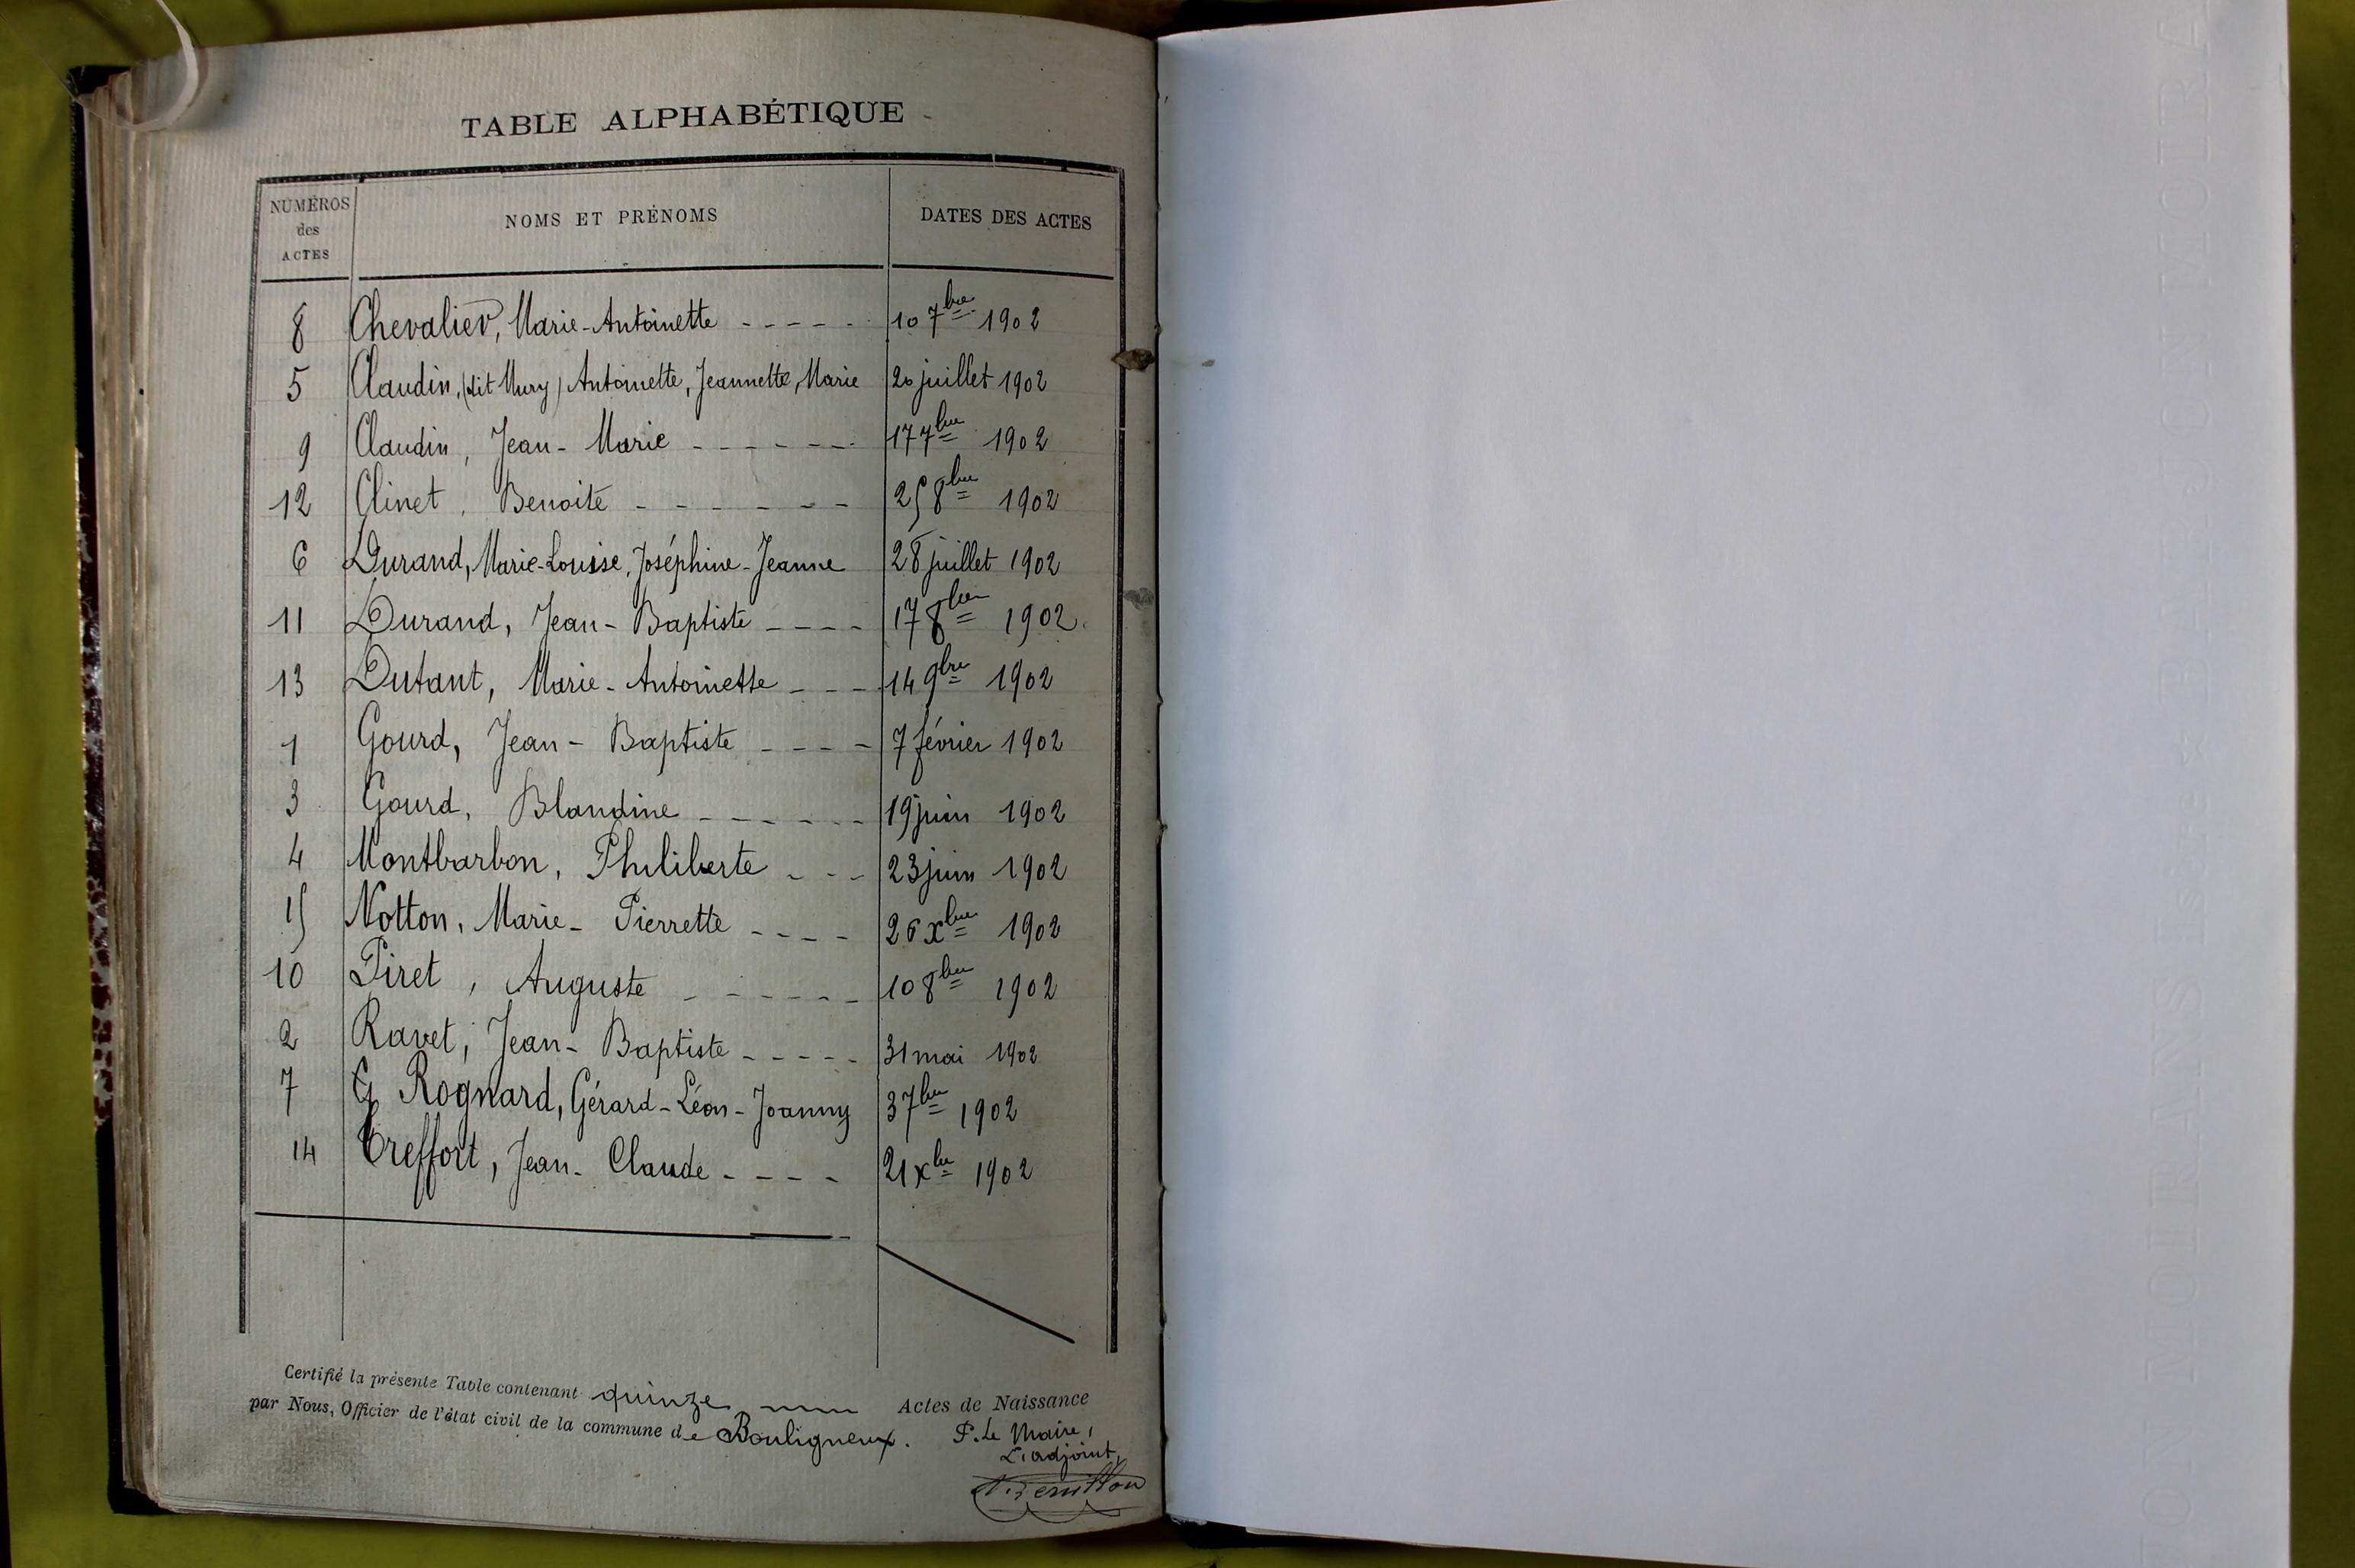 TABLE ALPHABÉTIQUE
NUMÉROS des ACTES NOMS ET PRÉNOMS DATES DES ACTES
8 Chevalier, Marie-Antoinette - - - - - 10 7bre 1902
5 Claudin, (dit Mury) Antoinette, Jeannette, Marie 20 juillet 1902
9 Claudin, Jean-Marie - - - - - - 17 7bre 1902
12 Clinet, Benoite - - - - - - 25 8bre 1902
6 Durand, Marie-Louise, Joséphine-Jeanne 28 juillet 1902
11 Durand, Jean-Baptiste - - - - 17 8bre 1902
13 Dutant, Marie-Antoinette - - - 14 9bre 1902
1 Gourd, Jean-Baptiste - - - - 7 février 1902
3 Gourd, Blandine - - - - - - 19 juin 1902
4 Montbarbon, Philiberte - - - 23 juin 1902
15 Notton, Marie-Pierrette - - - - 26 xbre 1902
10 Piret, Auguste - - - - - - 10 8bre 1902
2 Ravet, Jean-Baptiste - - - - - 31 mai 1902
7 G Rognard, Gérard-Léon-Joanny 3 7bre 1902
14 Treffort, Jean-Claude - - - - 21 xbre 1902
Certifié la présente Table contenant quinze Actes de Naissance
par Nous, Officier de l'état civil de la commune de Bouligneux. P. Le Maire,
L'adjoint,